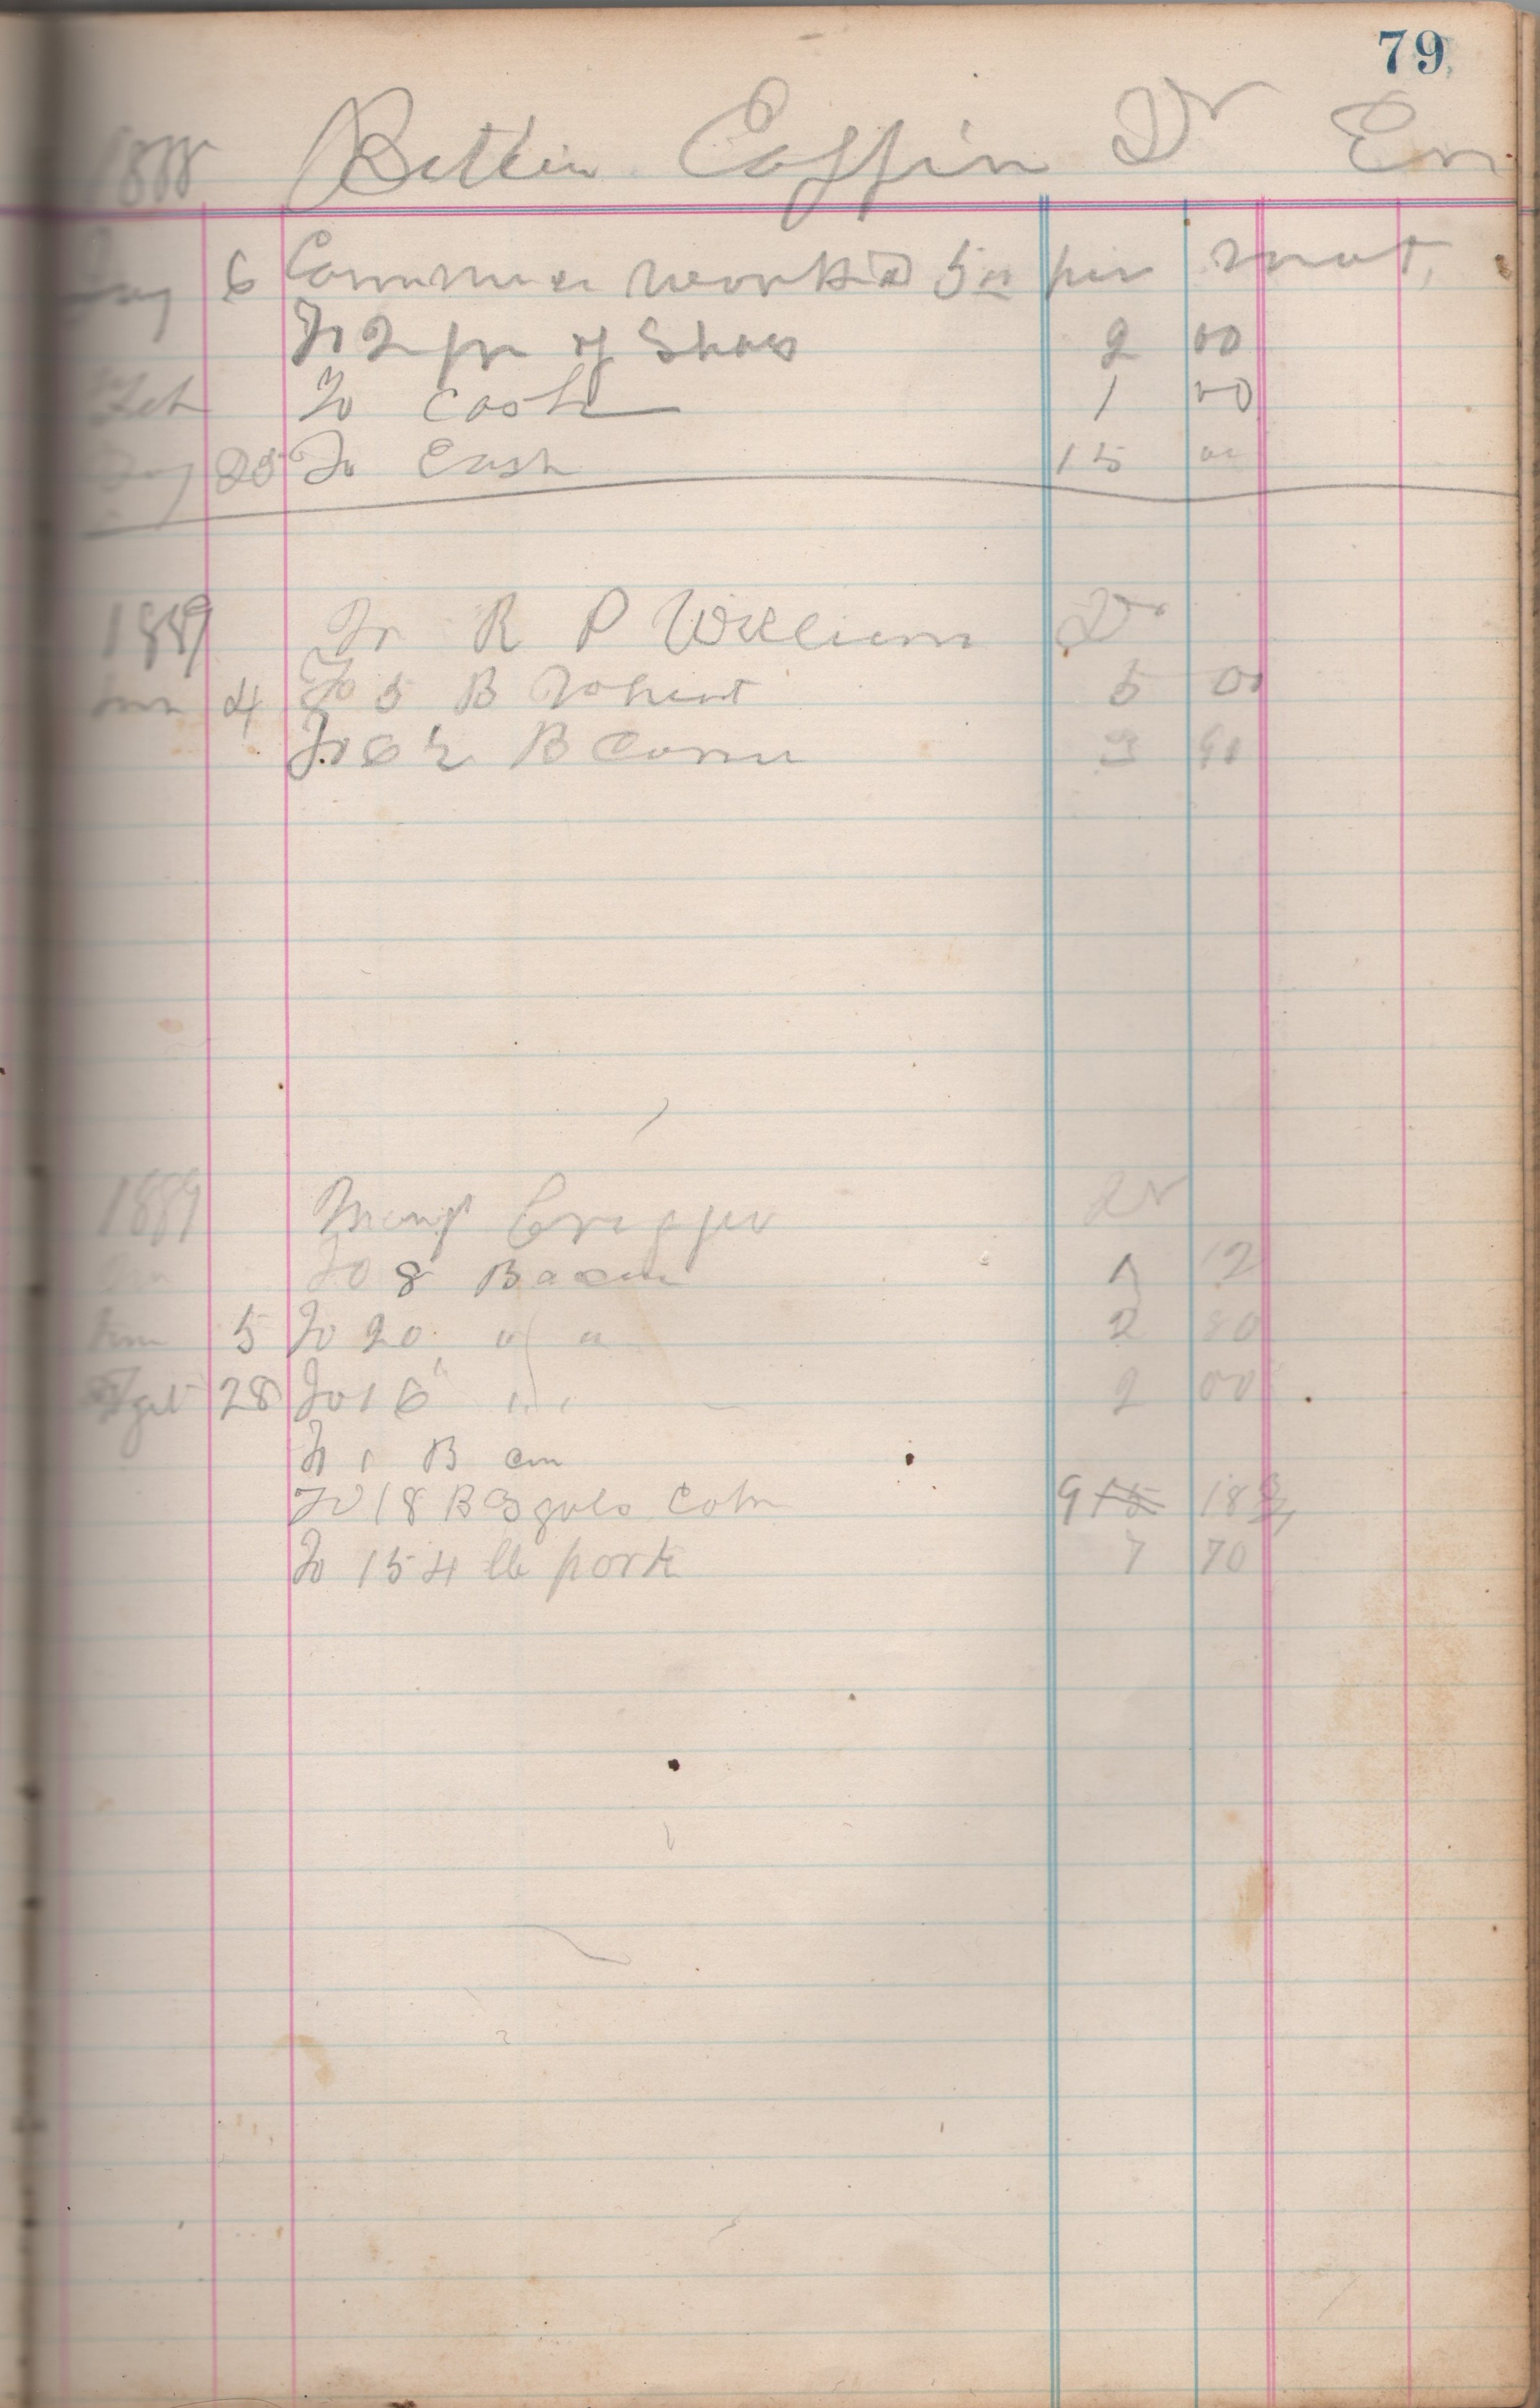 79
1888 Bettie Coffin Dr
6 Commence work @ 5 00 per mot,
To 2 pr of Shoes 2 00
Feb To Cash 1 00
25 To Cash 15 00
1889 R P William Dr
4 To 5 B Wheat 5 00
To 6 ½ B Corn 3 90
1889 Dr
To 8 Bacon 1 12
5 To 20 " " 2 80
28 To 16 " " 2 00
To 1 B
To 18 B 3 gals 9 15 18 ¾
To 154 lb pork 7 70